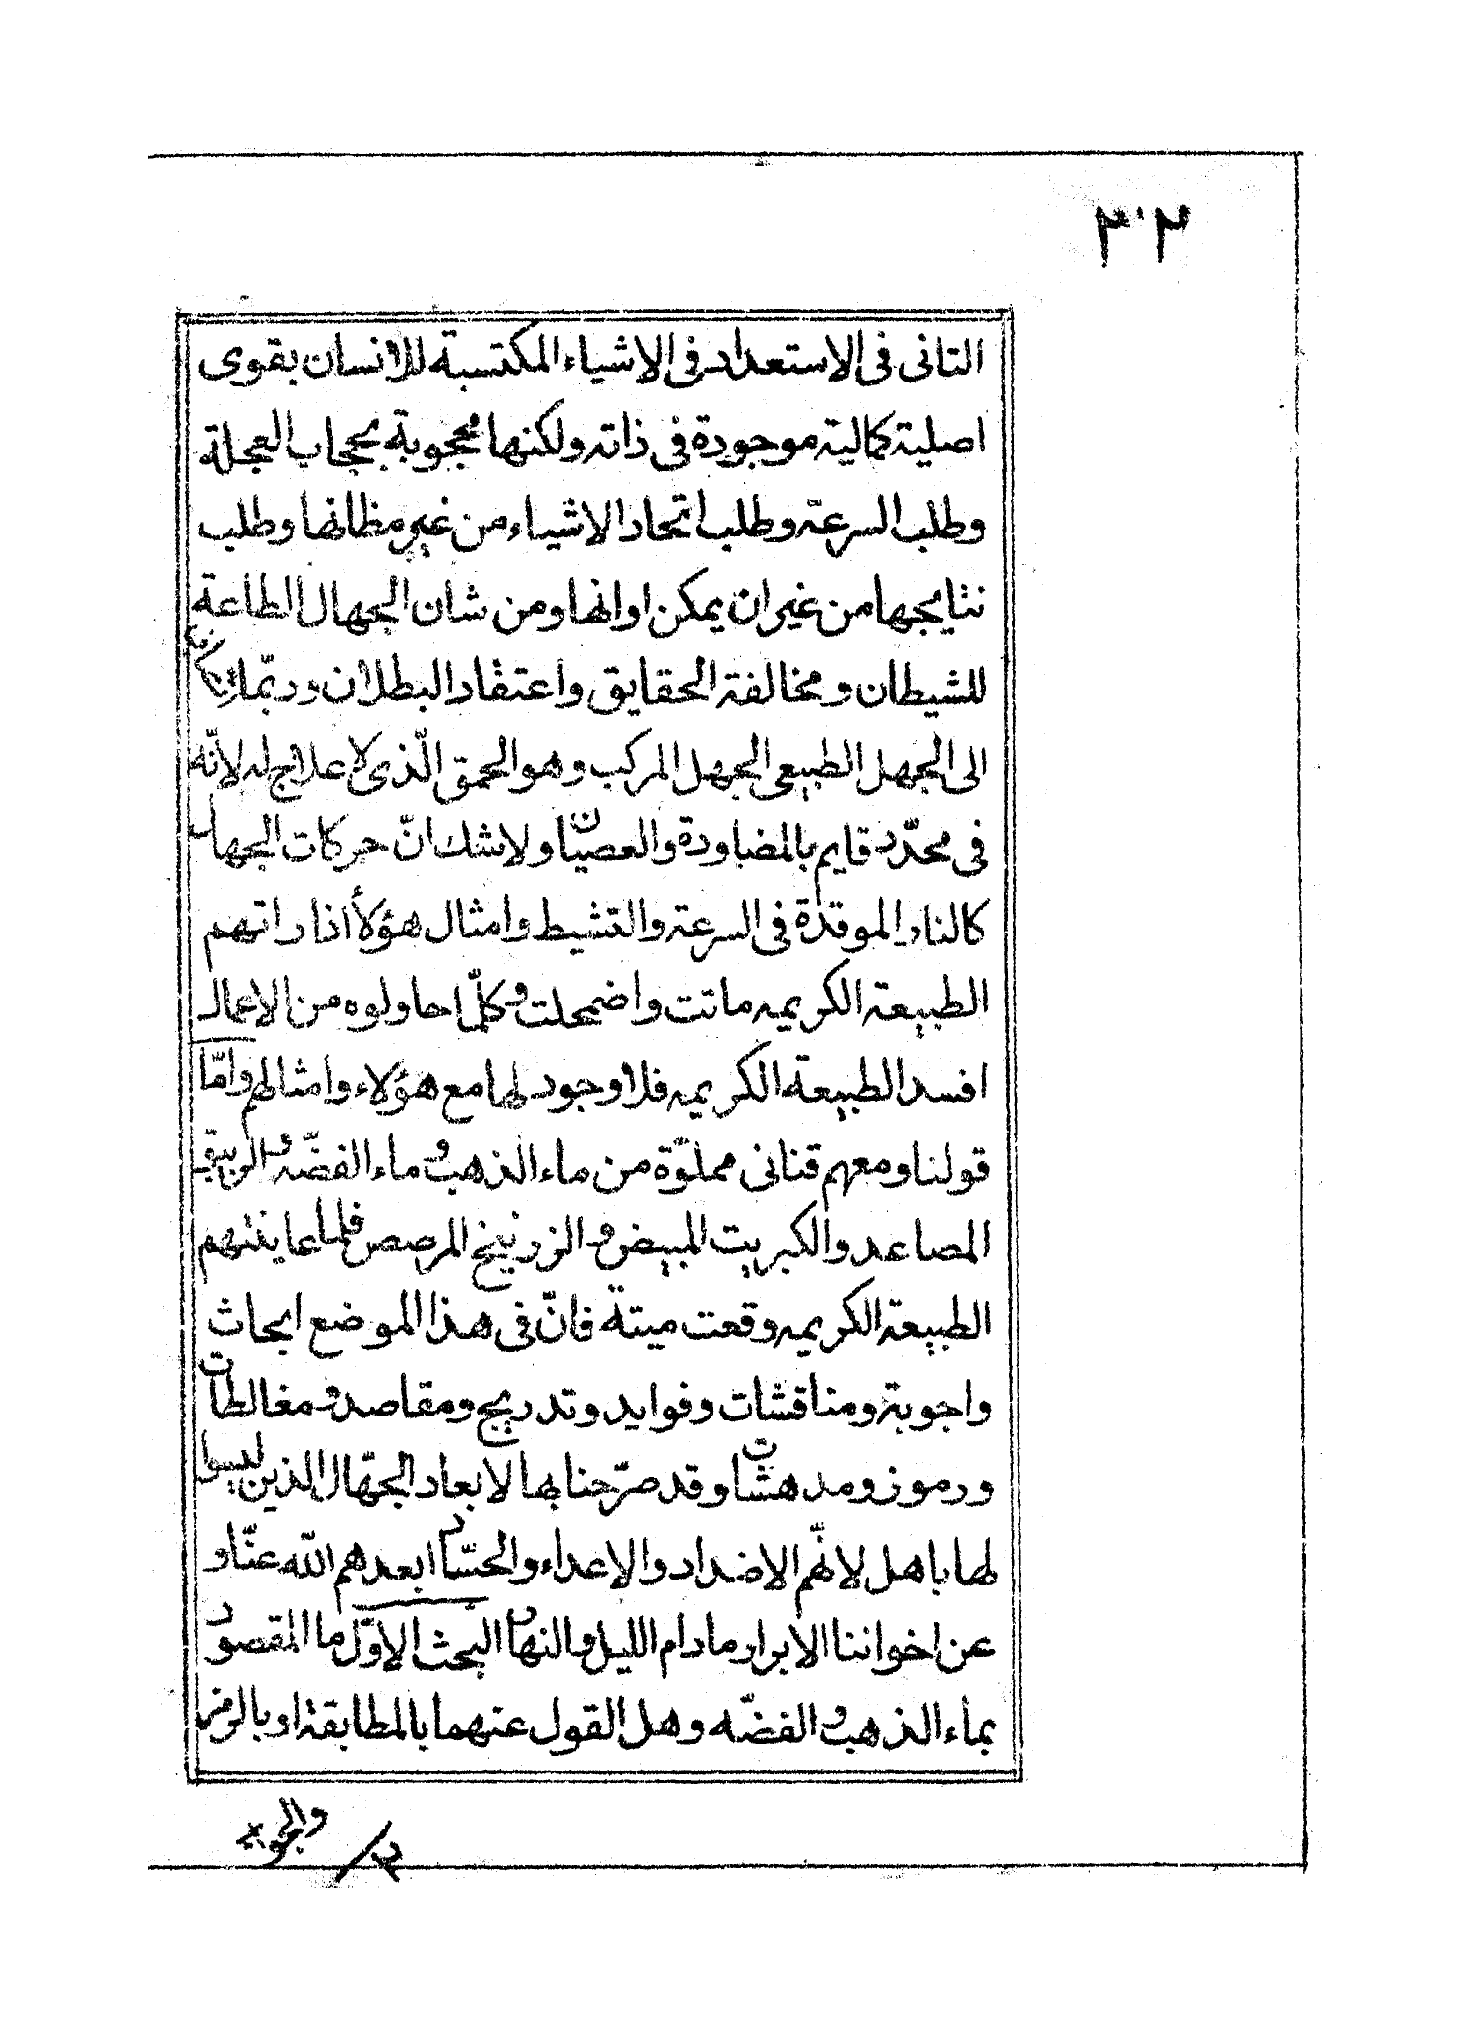 ٣٠٢
الثانى فى الاستعداد فى الاشياء المكتسبة للانسان بقوى
اصلية كمالية موجودة فى ذاته ولكنها محجوبة بحجاب العجلة
وطلب السرعة وطلب اتحاد الاشياء من غير مظانها وطلب
نتايجها من غير ان يمكن اوانها ومن شان الجهال الطاعة
للشيطان ومخالفة الحقايق واعتقاد البطلان وربّما
الى الجهل الطبيعى الجهل المركب وهو الحمق الّذى لا علاج له لانّه
فى محدّد قايم بالمضاودة والعصيان ولا شك انّ حركات الجهال
كالنار الموقدة فى السرعة والتشيط وامثال هؤلأ اذا راتهم
الطبيعة الكريمه ماتت واضمحلت وكلّما حاولوه من الاعمال
افسد الطبيعة الكريمه فلا وجود لها مع هؤلاء وامثالهم وامّا
قولنا ومعهم قنانى مملوّة من ماء الذهب وماء الفضّه والزيبق
المصاعد والكبريت المبيض والزرنيخ المرصص فلما عاينتهم
الطبيعة الكريمه وقعت ميتة فانّ فى هذا الموضع ابحاث
واجوبة ومناقشات وفوايد وتدريج ومقاصد ومغالطات
ورموز ومدهشات وقد صرّحنا بها لابعاد الجهّال الذين ليسوا
لها باهل لانّهم الاضداد والاعداء والحسّاد ابعدهم الله عنّا و
عن اخواننا الابرار مادام الليل والنهار البحث الاوّل ما المقصود
بماء الذهب والفضّه وهل القول عنهما بالمطابقة او بالرمز
والجواب